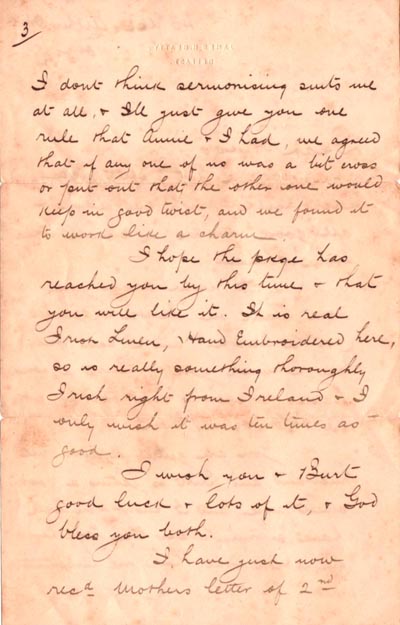 3
I dont think sermonising suits me
at all, & Ill just give you one
rule that Annie & I had, we agreed
that if any one of us was a bit cross
or put out that the other one would
keep in good twist, and we found it
to work like a charm.
I hope the pkge has
reached you by this time & that
you will like it. It is real
Irish Linen, Hand Embroidered here,
so is really something thoroughly
Irish right from Ireland & I
only wish it was ten times as
good.
I wish you & Burt
good luck & lots of it, & God
bless you both.
I have just now
recd Mothers letter of 2nd